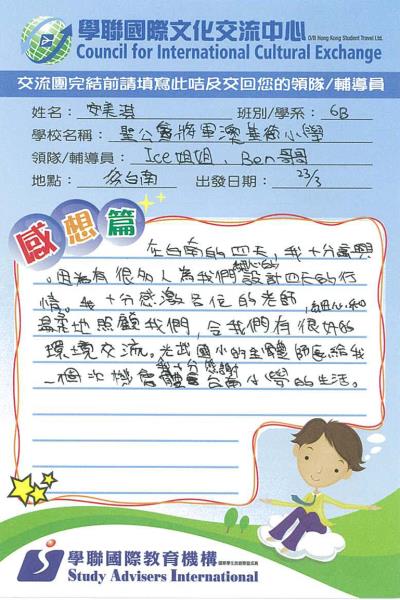 學聯國際文化交流中心 O/B Hong Kong Student Travel Ltd.
Council for International Cultural Exchange
交流團完結前請填寫此咭及交回您的領隊/輔導員
姓名：安美淇 班別/學系：6B
學校名稱：聖公會將軍澳基德小學
領隊/輔導員：Ice姐姐、Ben哥哥
地點：台南 出發日期：23/3
感想篇
在台南的四天，我十分高興
，因為有很多人為我們細心的設計四天的行
情。我十分感激各位的老師，細心和
溫柔地照顧我們，令我們有很好的
環境交流。光武國小的全體師長給我
一個次機會體會台南小學的生活。我十分感謝
學聯國際教育機構
Study Advisers International